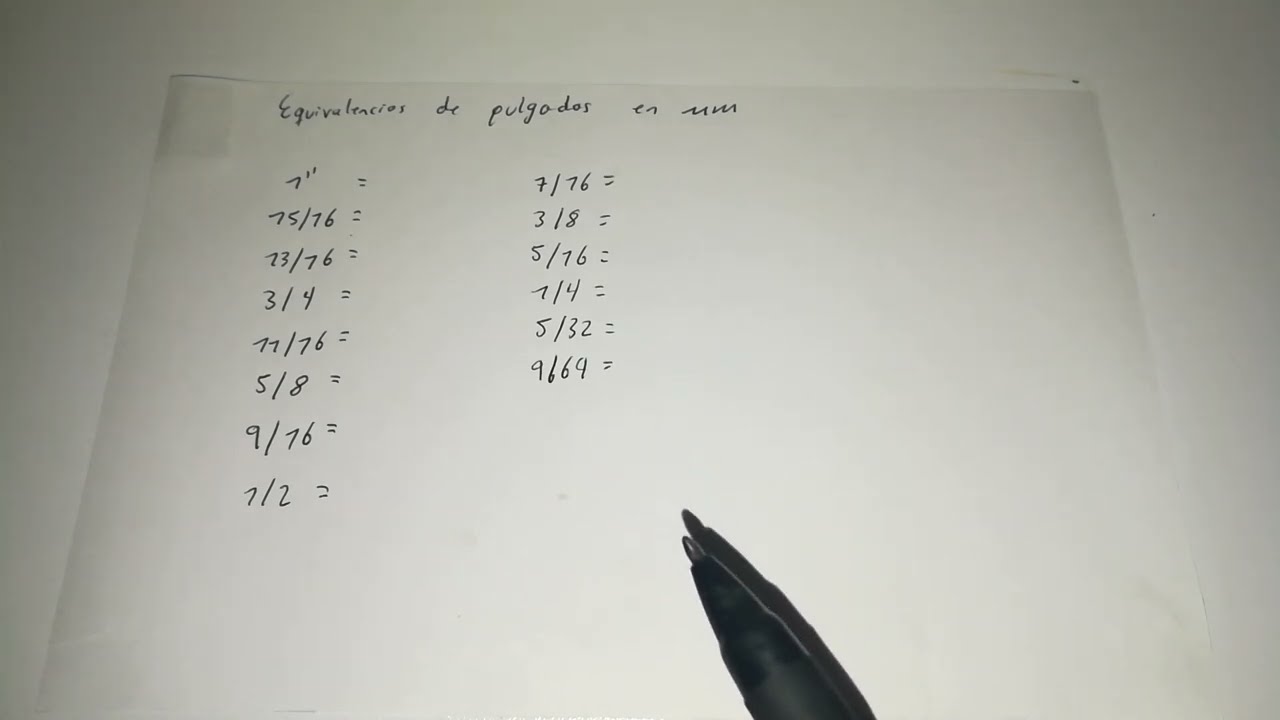 Equivalencias de pulgadas en mm
1" =
15/16 =
13/16 =
3/4 =
11/16 =
5/8 =
9/16 =
1/2 =
7/16 =
3/8 =
5/16 =
1/4 =
5/32 =
9/64 =